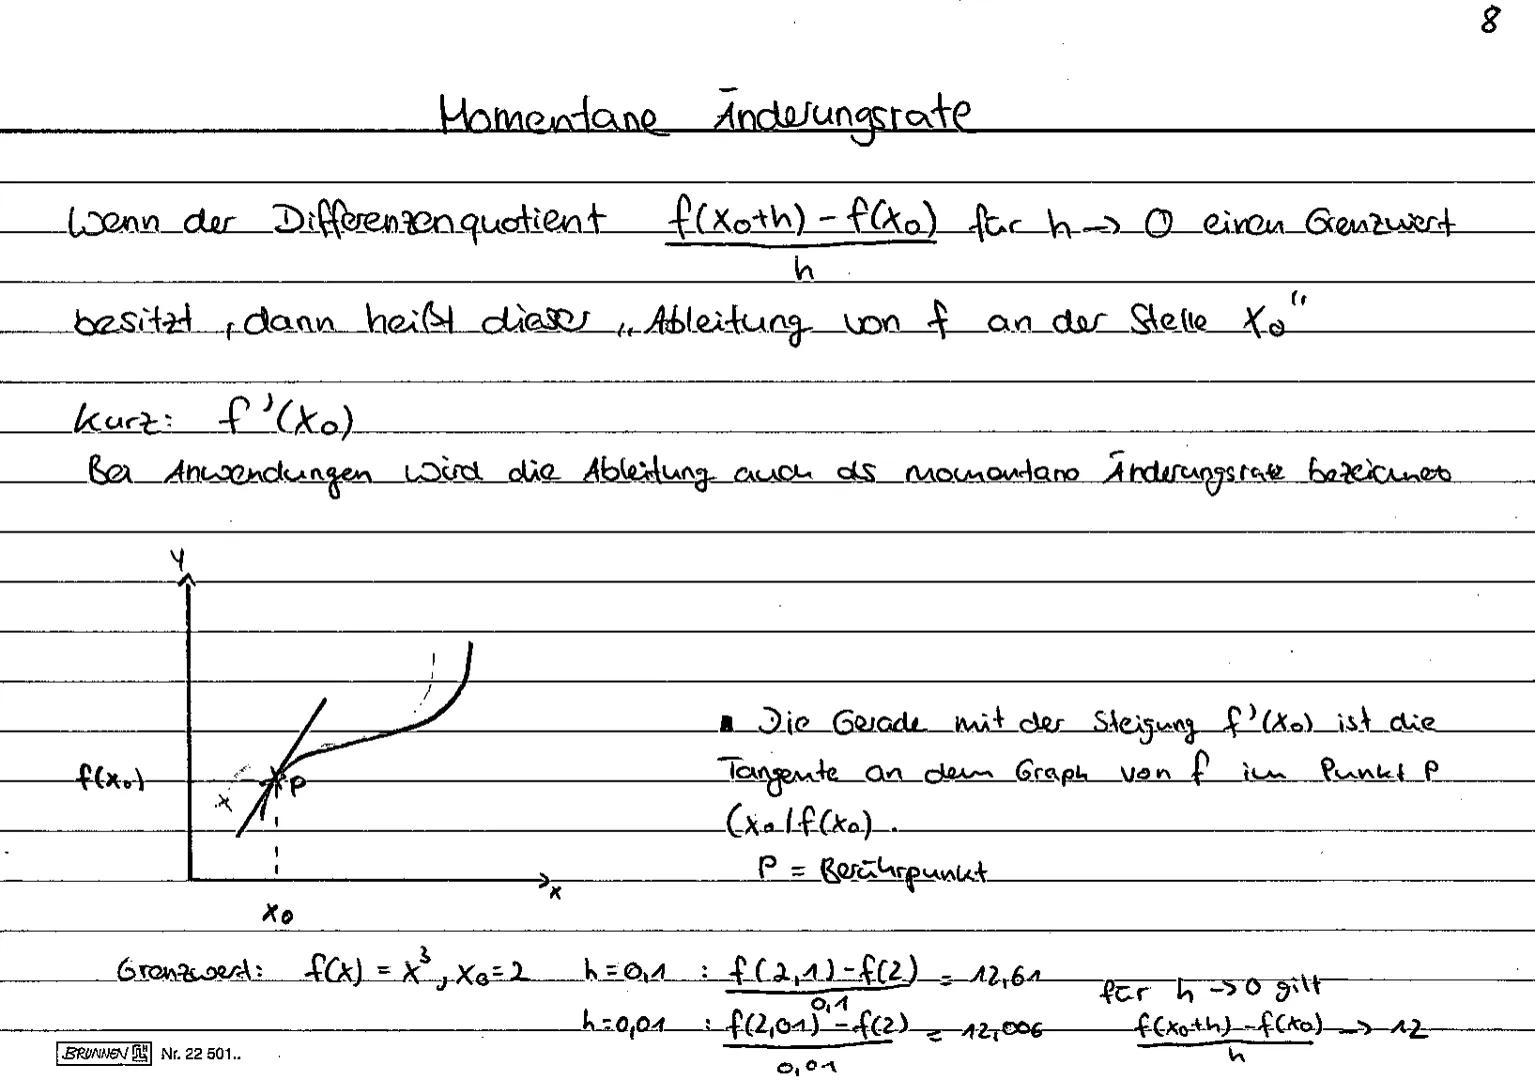 8
Momentane Änderungsrate
Wenn der Differenzenquotient f(x₀+h) - f(x₀) für h → 0 einen Grenzwert
h
besitzt, dann heißt dieser „Ableitung von f an der Stelle x₀"
Kurz: f'(x₀)
Bei Anwendungen wird die Ableitung auch als momentane Änderungsrate bezeichnet
y
■ Die Gerade mit der Steigung f'(x₀) ist die
f(x₀) P Tangente an dem Graph von f im Punkt P
(x₀/f(x₀).
P = Berührpunkt
x
x₀
Grenzwert: f(x) = x³, x₀=2 h=0,1 : f(2,1)-f(2) = 12,61
0,1
für h → 0 gilt
h=0,01 : f(2,01) - f(2) = 12,006 f(x₀+h) - f(x₀) → 12
0,01 h
BRUNNEN Nr. 22 501..